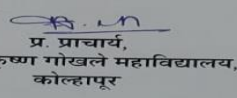 प्र. प्राचार्य,
कृष्ण गोखले महाविद्यालय,
कोल्हापूर